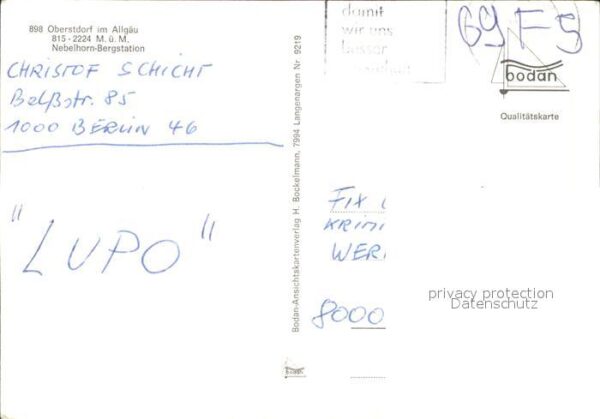 898 Oberstdorf im Allgäu
815 - 2224 M. ü. M.
Nebelhorn-Bergstation
CHRISTOF SCHICHT
Belßstr. 85
1000 BERLIN 46
"LUPO"
Bodan-Ansichtskartenverlag H. Bockelmann, 7994 Langenargen Nr. 9219
damit
wir uns
besser
69F5
bodan
Qualitätskarte
FIX
KRIMI
WER
8000
privacy protection
Datenschutz